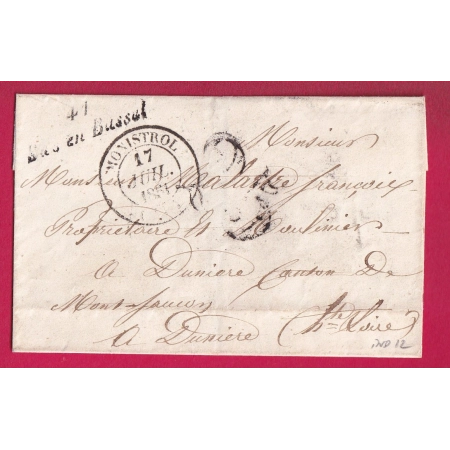 41
Bas en Basset
MONISTROL
17
JUIL.
Monsieur
Monsieur Malartre françois
Propriétaire & Moulinier
A Dunière Canton De
Montfaucon
A Dunière (hte Loire)
IND 12